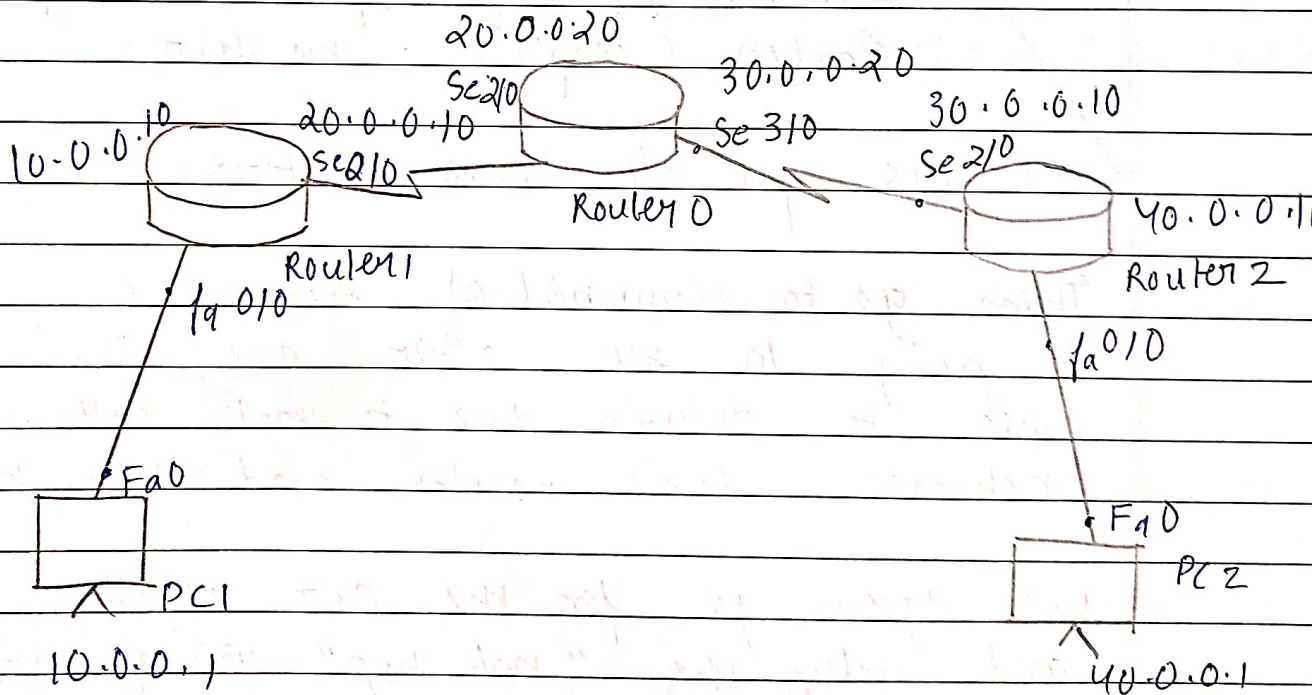 20.0.0.20
Se2/0
30.0.0.20
30.0.0.10
10.0.0.10
20.0.0.10
Se2/0
Se 3/0
Se2/0
Router 0
40.0.0.1
Router1
Router 2
fa 0/0
fa 0/0
Fa0
Fa0
PC1
PC2
10.0.0.1
40.0.0.1